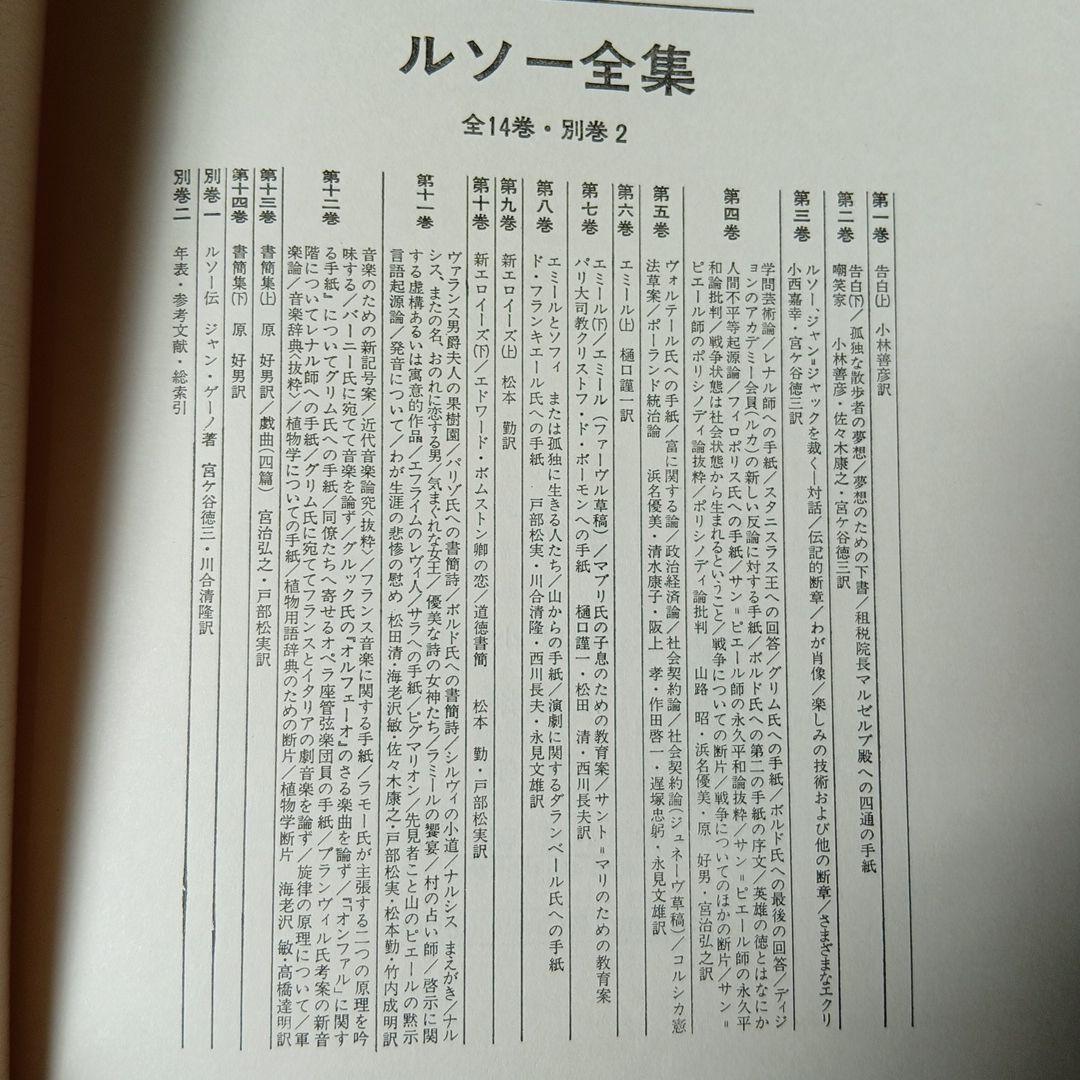 ルソー全集
全14巻・別巻2
第一巻 告白(上) 小林善彦訳
第二巻 告白(下)/孤独な散歩者の夢想/夢想のための下書/租税院長マルゼルブ殿への四通の手紙
嘲笑家 小林善彦・佐々木康之・宮ケ谷徳三訳
第三巻 ルソー、ジャン=ジャックを裁く―対話/伝記的断章/わが肖像/楽しみの技術および他の断章/さまざまなエクリ
小西嘉幸・宮ケ谷徳三訳
第四巻 学問芸術論/レナル師への手紙/スタニスラス王への回答/グリム氏への手紙/ボルド氏への最後の回答/ディジ
ョンのアカデミー会員(ルカ)の新しい反論に対する手紙/ボルド氏への第二の手紙の序文/英雄の徳とはなにか
人間不平等起源論/フィロポリス氏への手紙/サン=ピエール師の永久平和論抜粋/サン=ピエール師の永久平
和論批判/戦争状態は社会状態から生まれるということ/戦争についての断片/戦争についてのほかの断片/サン=
ピエール師のポリシノディ論抜粋/ポリシノディ論批判 山路 昭・浜名優美・原 好男・宮治弘之訳
第五巻 ヴォルテール氏への手紙/富に関する論/政治経済論/社会契約論/社会契約論(ジュネーヴ草稿)/コルシカ憲
法草案/ポーランド統治論 浜名優美・清水康子・阪上 孝・作田啓一・遅塚忠躬・永見文雄訳
第六巻 エミール(上) 樋口謹一訳
第七巻 エミール(下)/エミール(ファーヴル草稿)/マブリ氏の子息のための教育案/サント=マリのための教育案
パリ大司教クリストフ・ド・ボーモンへの手紙 樋口謹一・松田 清・西川長夫訳
第八巻 エミールとソフィ または孤独に生きる人たち/山からの手紙/演劇に関するダランベール氏への手紙
ド・フランキエール氏への手紙 戸部松実・川合清隆・西川長夫・永見文雄訳
第九巻 新エロイーズ(上) 松本 勤訳
第十巻 新エロイーズ(下)/エドワード・ボムストン卿の恋/道徳書簡 松本 勤・戸部松実訳
第十一巻 ヴァランス男爵夫人の果樹園/パリゾ氏への書簡詩/ボルド氏への書簡詩/シルヴィの小道/ナルシス まえがき/ナル
シス、またの名、おのれに恋する男/気まぐれな女王/優美な詩の女神たち/ラミールの饗宴/村の占い師/啓示に関
する虚構あるいは寓意的作品/エフライムのレヴィ人/サラへの手紙/ピグマリオン/先見者こと山のピエールの黙示
言語起源論/発音について/わが生涯の悲惨の慰め 松田清・海老沢敏・佐々木康之・戸部松実・松本勤・竹内成明訳
第十二巻 音楽のための新記号案/近代音楽論究〈抜粋〉/フランス音楽に関する手紙/ラモー氏が主張する二つの原理を吟
味する/バーニー氏に宛てて音楽を論ず/グルック氏の『オルフェーオ』のさる楽曲を論ず/『オンファル』に関す
る手紙』についてグリム氏への手紙/同僚たちへ寄せるオペラ座管弦楽団員の手紙/ブランヴィル氏考案の新音
階についてレナル師への手紙/グリム氏に宛ててフランスとイタリアの劇音楽を論ず/旋律の原理について/軍
楽論/音楽辞典〈抜粋〉/植物学についての手紙/植物用語辞典のための断片/植物学断片 海老沢 敏・高橋達明訳
第十三巻 書簡集(上) 原 好男訳/戯曲(四篇) 宮治弘之・戸部松実訳
第十四巻 書簡集(下) 原 好男訳
別巻一 ルソー伝 ジャン・ゲーノ著 宮ケ谷徳三・川合清隆訳
別巻二 年表・参考文献・総索引